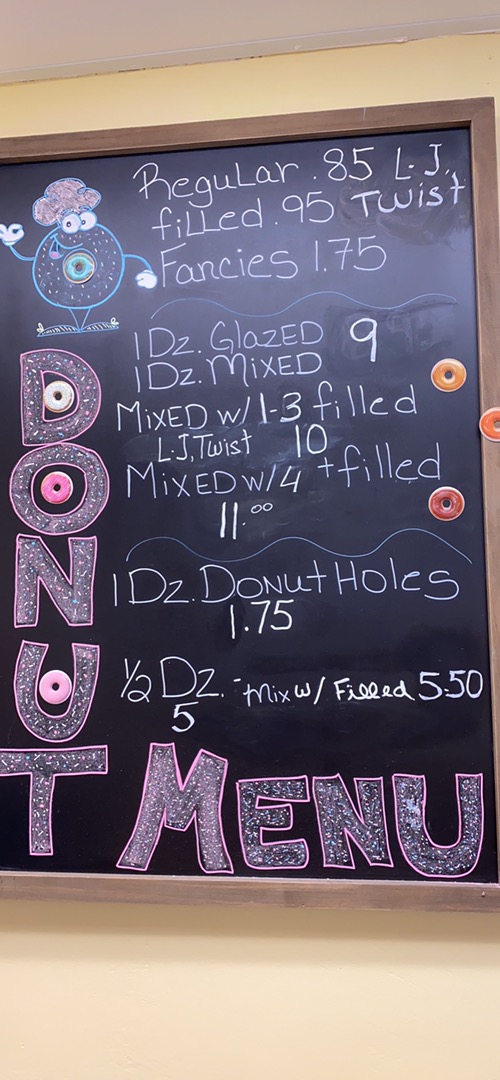 Regular .85 L-J,
filled .95 Twist
Fancies 1.75
1 Dz. Glazed 9
1 Dz. Mixed
Mixed w/ 1-3 filled
L-J, Twist 10
Mixed w/ 4 + filled
11.00
1 Dz. Donut Holes
1.75
1/2 Dz. - Mix w/ Filled 5.50
5
DONUT MENU